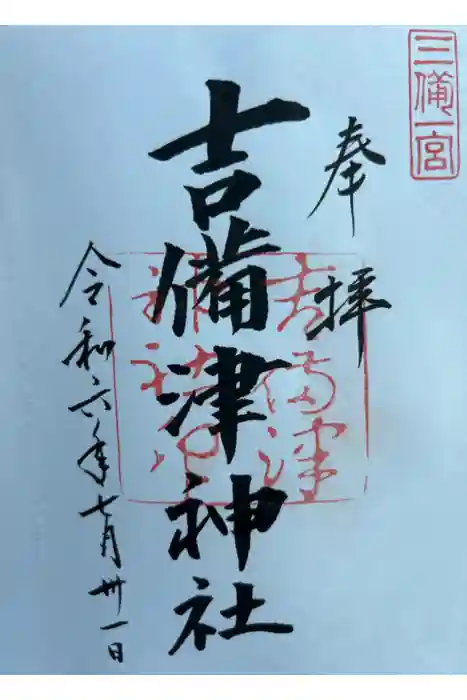 三備一宮
奉拝
吉備津神社
吉備津
神社
令和六年七月卅一日